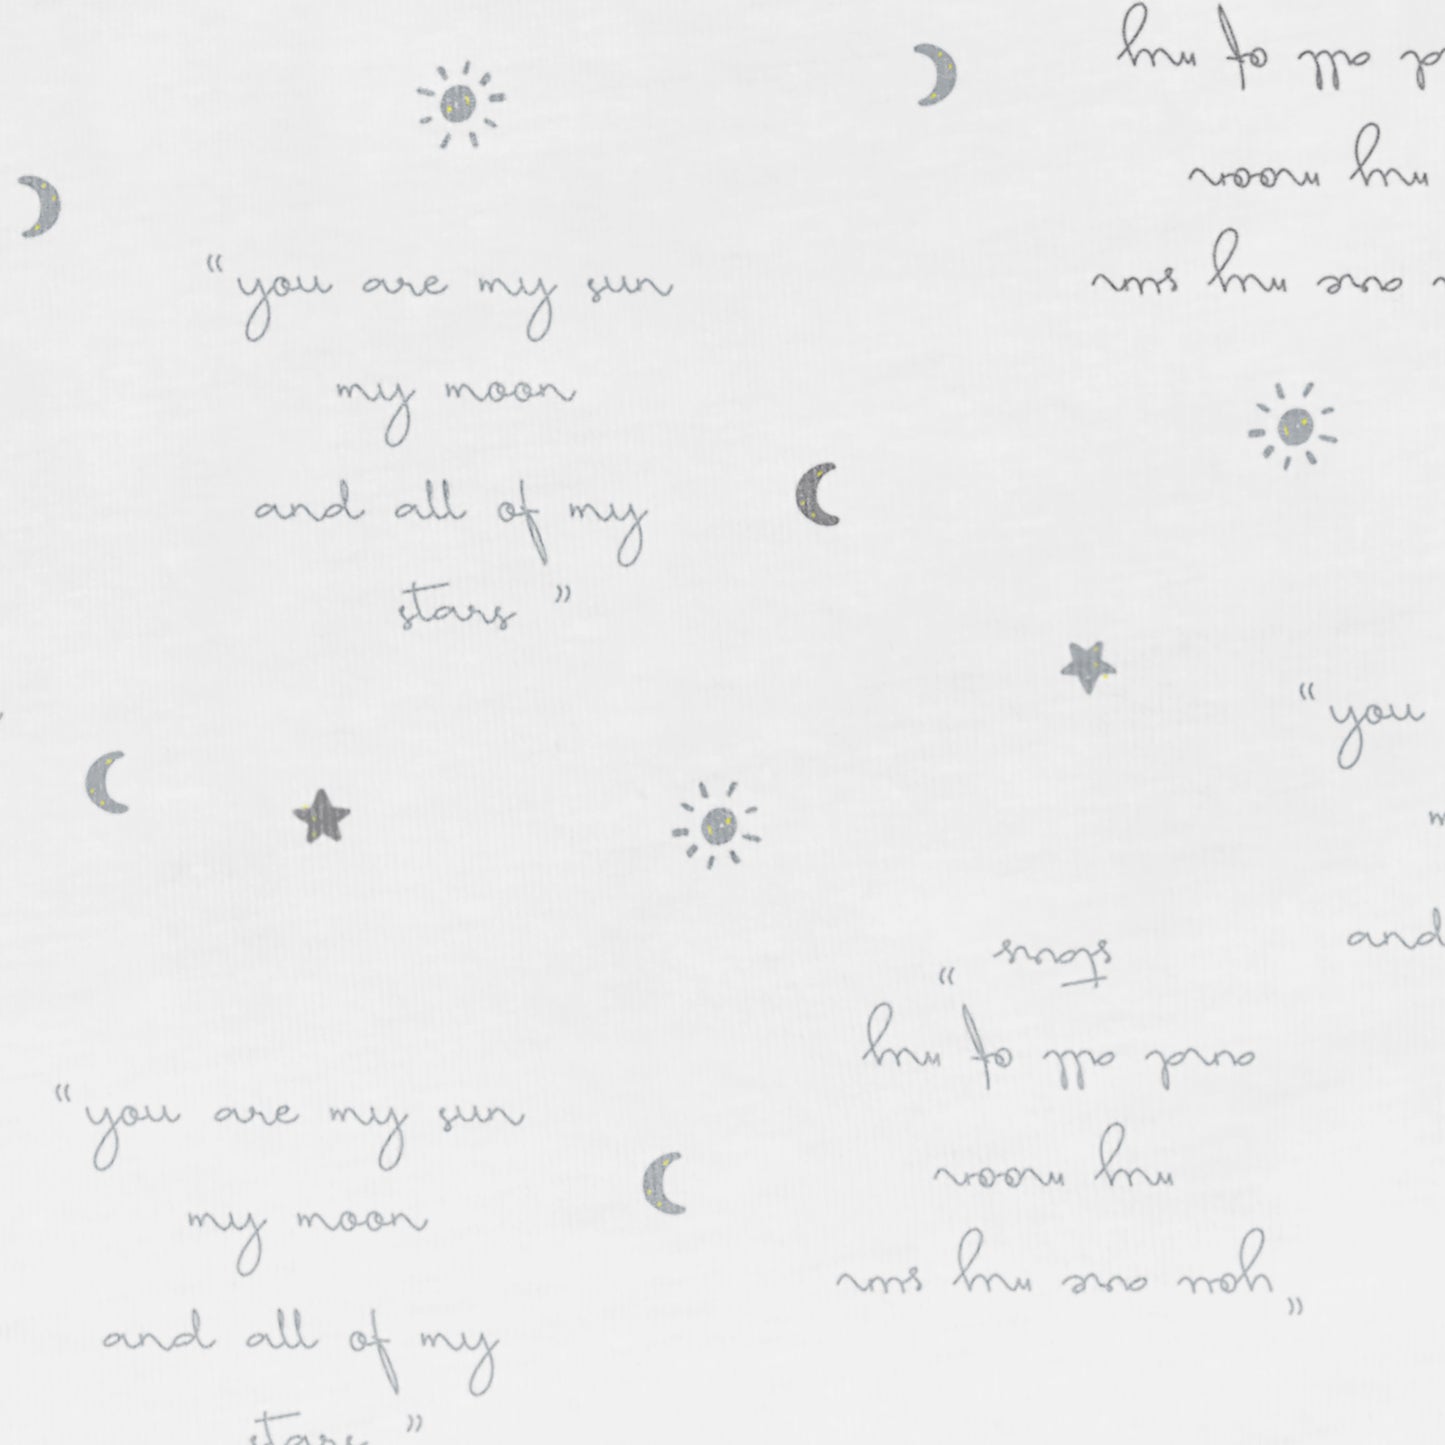 “you are my sun
my moon
and all of my
stars”
and all of my
my moon
are my sun
“you
and
stars”
and all of my
my moon
“you are my sun
“you are my sun
my moon
and all of my
stars”